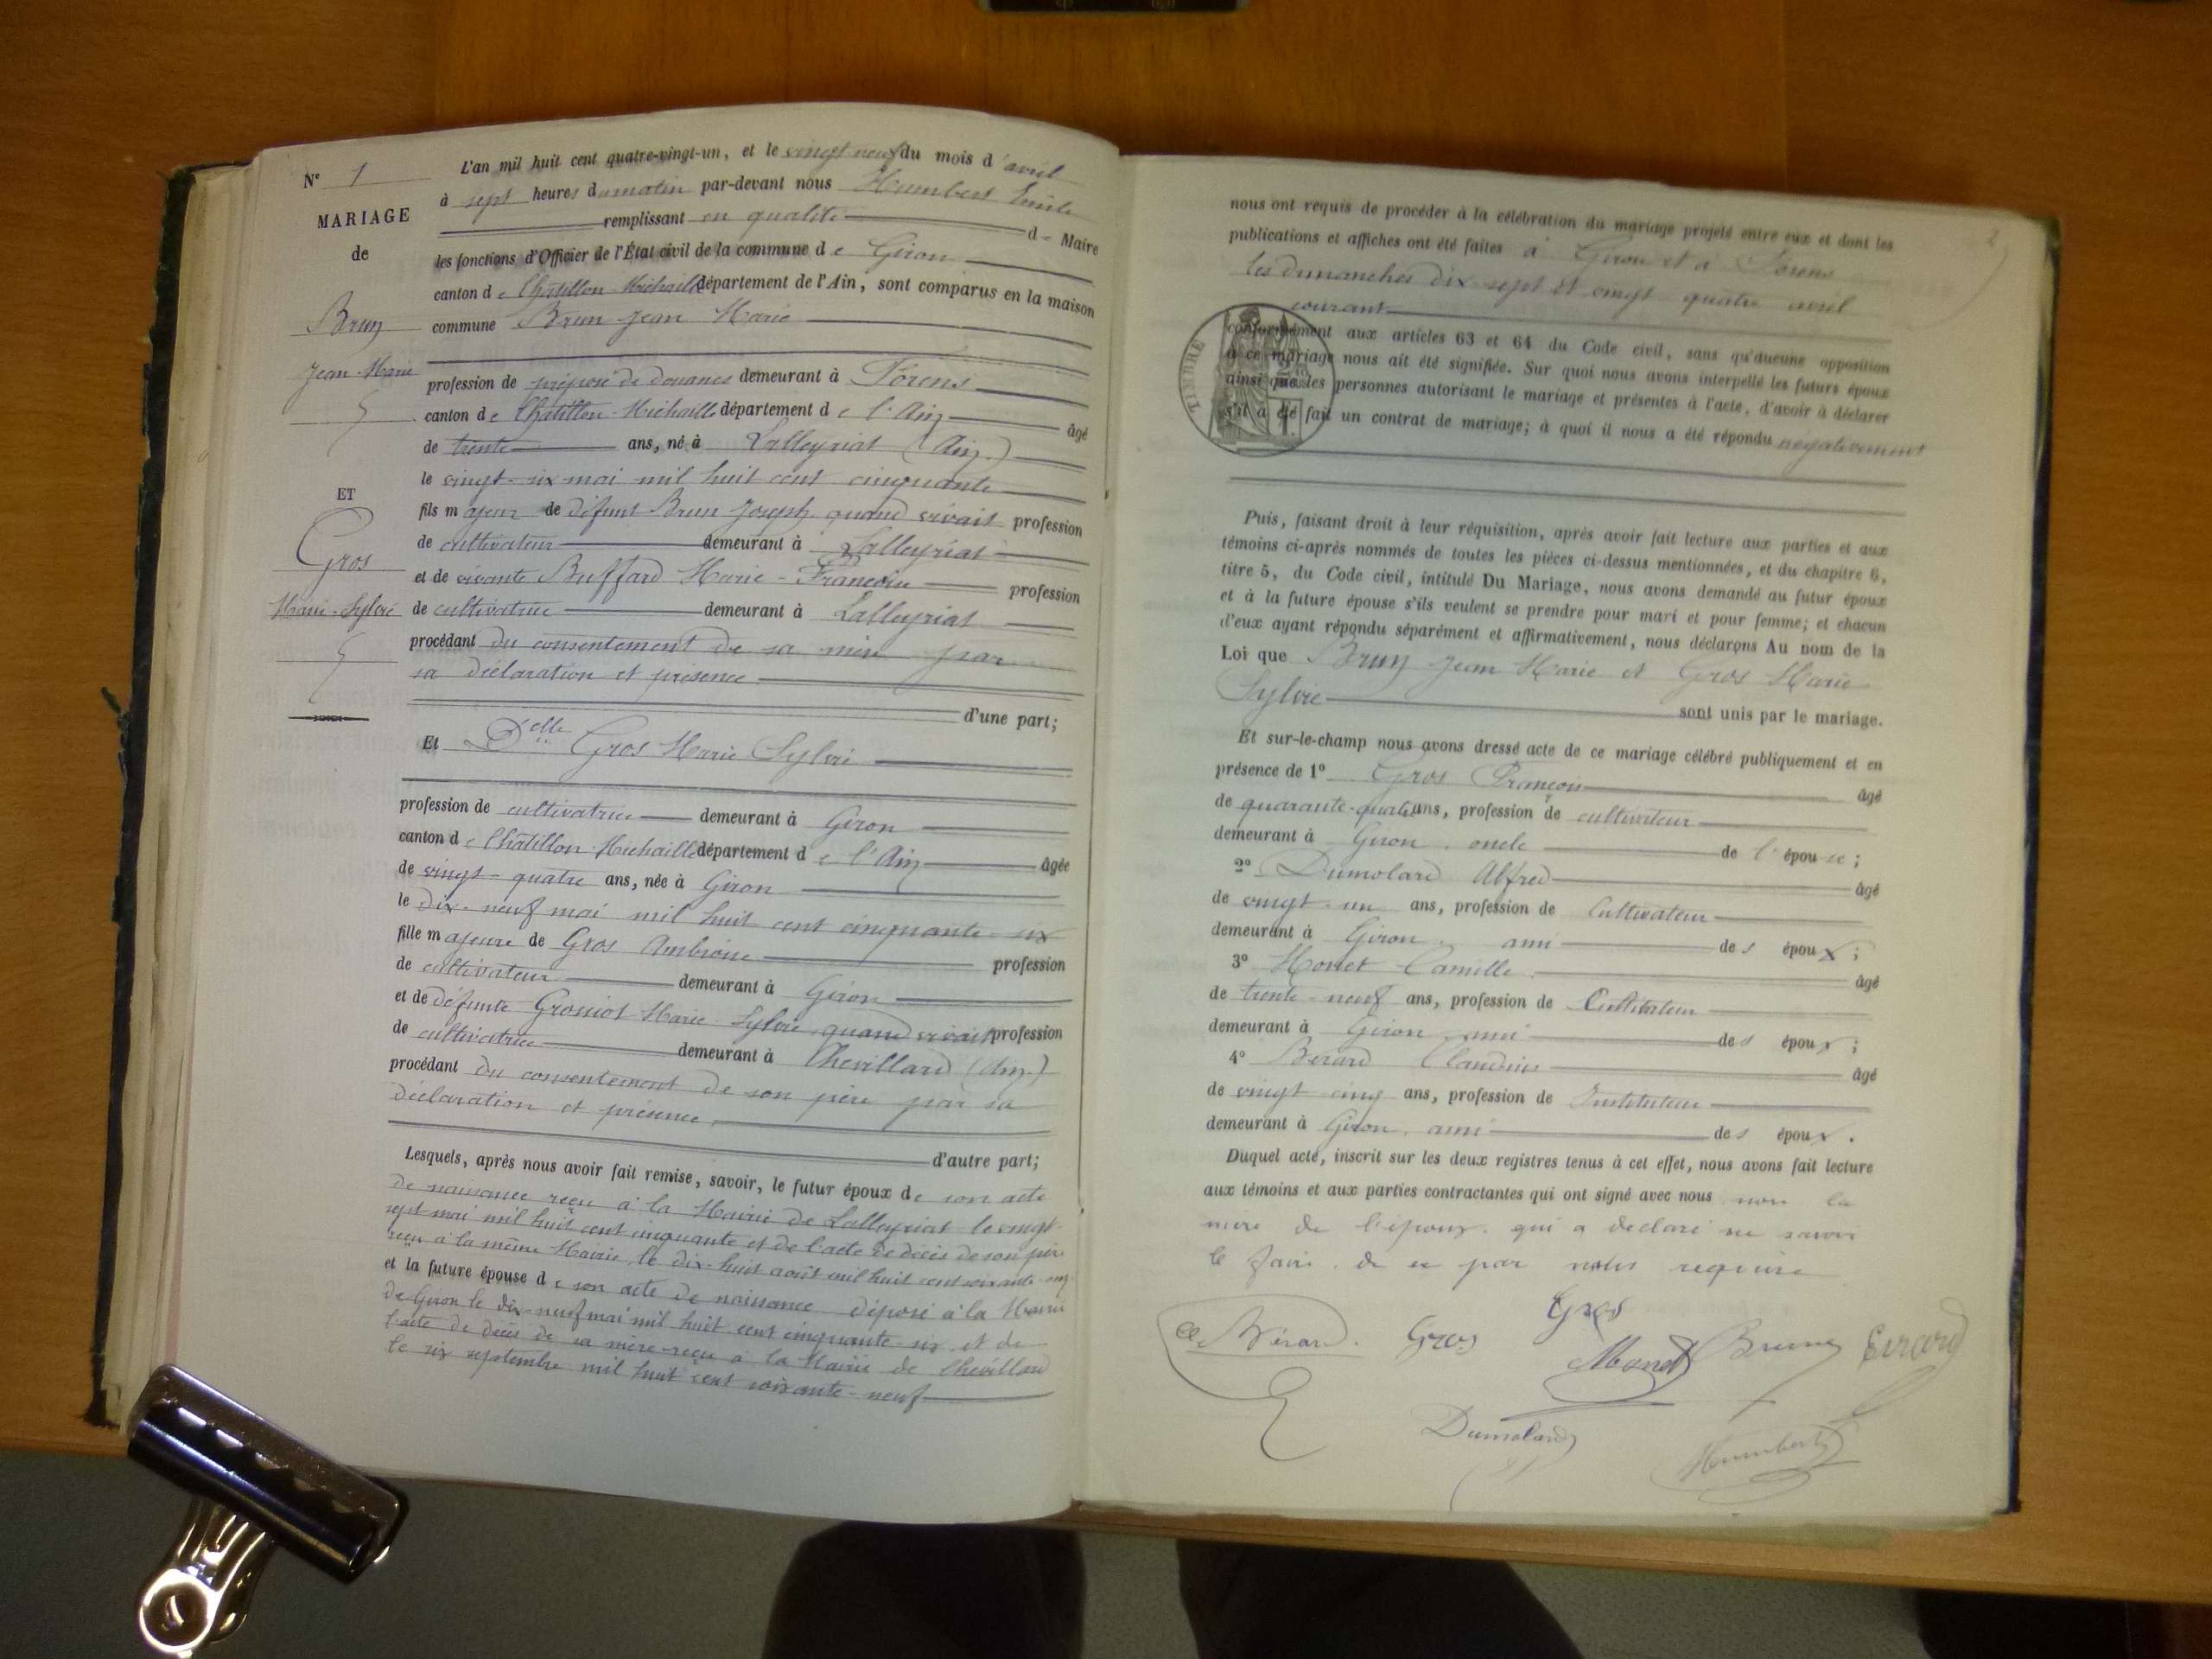 N° 1
MARIAGE
de
Brun
Jean-Marie
ET
Gros
Marie-Sylvie
L'an mil huit cent quatre-vingt-un, et le vingt neuf du mois d'avril
à sept heures du matin par-devant nous Humbert Emile
remplissant en qualité de Maire
les fonctions d'Officier de l'État civil de la commune de Giron
canton de Châtillon-Michaille département de l'Ain, sont comparus en la maison
commune Brun Jean Marie
profession de préposé de douanes demeurant à Forens
canton de Châtillon-Michaille département de l'Ain âgé
de trente ans, né à Lalleyriat (Ain)
le vingt-six mai mil huit cent cinquante
fils majeur de défunt Brun Joseph quand vivait profession
de cultivateur demeurant à Lalleyriat
et de vivante Buffard Marie-Francoise profession
de cultivatrice demeurant à Lalleyriat
procédant du consentement de sa mère par
sa déclaration et présence
d'une part;
Et Delle Gros Marie Sylvie
profession de cultivatrice demeurant à Giron
canton de Châtillon-Michaille département de l'Ain âgée
de vingt-quatre ans, née à Giron
le dix-neuf mai mil huit cent cinquante-six
fille majeure de Gros Ambroise profession
de cultivateur demeurant à Giron
et de défunte Grosniot Marie Sylvie quand vivait profession
de cultivatrice demeurant à Chevillard (Ain)
procédant du consentement de son père par sa
déclaration et présence
d'autre part;
Lesquels, après nous avoir fait remise, savoir, le futur époux de son acte
de naissance reçu à la Mairie de Lalleyriat le vingt-
sept mai mil huit cent cinquante et de l'acte de décès de son père
reçu à la même Mairie le dix-huit août mil huit cent soixante
et la future épouse de son acte de naissance déposé à la Mairie
de Giron le dix-neuf mai mil huit cent cinquante-six et de
l'acte de décès de sa mère reçu à la Mairie de Chevillard
le six septembre mil huit cent soixante-neuf
2
nous ont requis de procéder à la célébration du mariage projeté entre eux et dont les
publications et affiches ont été faites à Giron et à Forens
les dimanches dix-sept et vingt quatre avril
courant
TIMBRE
conformément aux articles 63 et 64 du Code civil, sans qu'aucune opposition
à ce mariage nous ait été signifiée. Sur quoi nous avons interpellé les futurs époux
ainsi que les personnes autorisant le mariage et présentes à l'acte, d'avoir à déclarer
s'il a été fait un contrat de mariage; à quoi il nous a été répondu négativement
Puis, faisant droit à leur réquisition, après avoir fait lecture aux parties et aux
témoins ci-après nommés de toutes les pièces ci-dessus mentionnées, et du chapitre 6,
titre 5, du Code civil, intitulé Du Mariage, nous avons demandé au futur époux
et à la future épouse s'ils veulent se prendre pour mari et pour femme; et chacun
d'eux ayant répondu séparément et affirmativement, nous déclarons Au nom de la
Loi que Brun Jean Marie et Gros Marie
Sylvie sont unis par le mariage.
Et sur-le-champ nous avons dressé acte de ce mariage célébré publiquement et en
présence de 1° Gros François âgé
de quarante-quatre ans, profession de cultivateur
demeurant à Giron, oncle de l'épouse;
2° Dumolard Alfred âgé
de vingt-un ans, profession de Cultivateur
demeurant à Giron, ami des époux;
3° Monet Camille âgé
de trente-neuf ans, profession de Cultivateur
demeurant à Giron ami des époux;
4° Bérard Claudius âgé
de vingt cinq ans, profession de Instituteur
demeurant à Giron, ami des époux.
Duquel acte, inscrit sur les deux registres tenus à cet effet, nous avons fait lecture
aux témoins et aux parties contractantes qui ont signé avec nous non la
mère de l'époux qui a déclaré ne savoir
le faire, de ce par nous requise
Cl Bérard. Gros Gros
Monet Brun
Dumolard Humbert